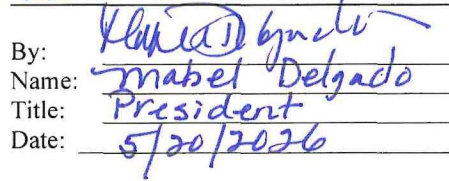 By:
Name: Mabel Delgado
Title: President
Date: 5/20/2026